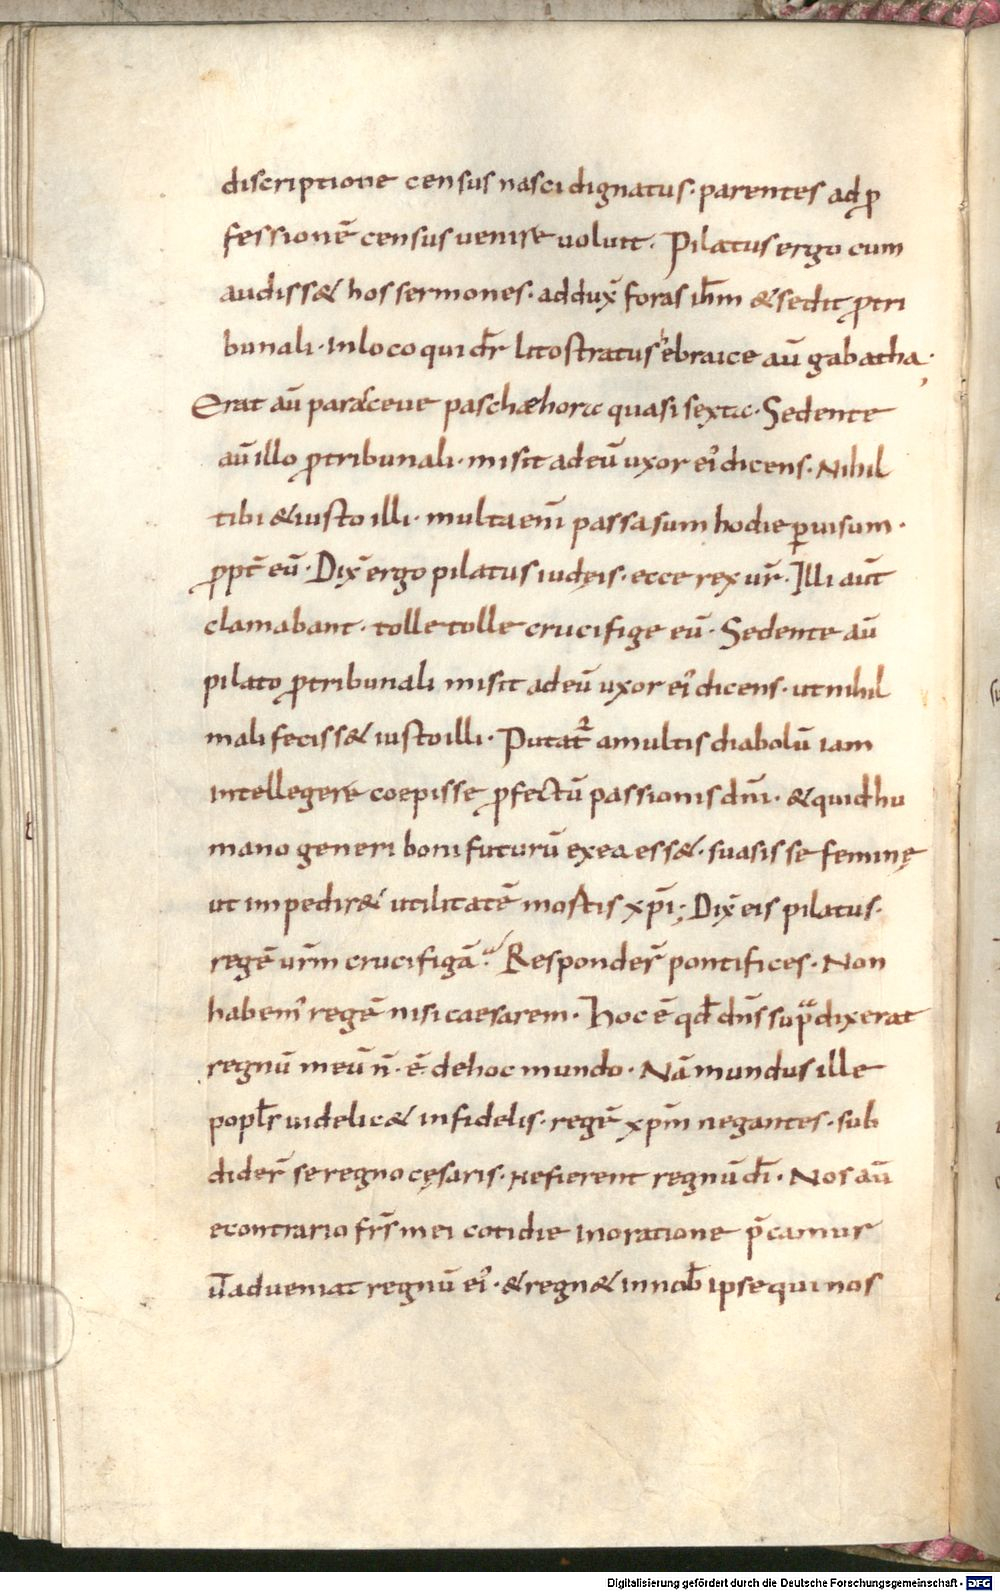 discriptione census nasci dignatus· parentes ad ꝓ
fessionē census uenire uoluit· Pilatus ergo cum
audiss& hos sermones· adduẋ foras ih̄m & sedit ꝓtri
bunali· In loco qui dr̄ litostratus ebraice aū gabatha·
Erat aū parasceue paschae hora quasi sexta· Sedente
aū illo ꝓtribunali· misit ad eū uxor ei' dicens· Nihil
tibi & iusto illi· multa eni̅ passa sum hodie ꝑ uisum·
ꝓpt̄ eū· Dix̄ ergo pilatus iudęis· ecce rex ur̄· Illi aut̄
clamabant· tolle tolle crucifige eū· Sedente aū
pilato ꝓtribunali misit ad eū uxor ei' dicens· ut nihil
mali feciss& iusto illi· Putat᷑ a multis diabolū iam
intellegere coepisse ꝓfectū passionis dn̄i· & quid hu
mano generi boni futurū ex ea ess&· suasisse feminę
ut impedir& utilitatē mortis xp̄i; Dix̄ eis pilatus·
regē ur̄m crucifigā? Responder̄ pontifices· Non
habem' regē nisi caesarem· Hoc ē qd̄ dn̄s supra dixerat
regnū meū n̄· ē· de hoc mundo· Nā mundus ille
popl̄s uidelic& infidelis· regē xp̄m negantes· sub
dider̄ se regno cęsaris· ne fierent regnū dī· Nos aū
econtrario fr̄s mei cotidie in oratione p̄camur
ut̄ adueniat regnū ei'· & regn& in nob̄ ipse qui nos
Digitalisierung gefördert durch die Deutsche Forschungsgemeinschaft - DFG